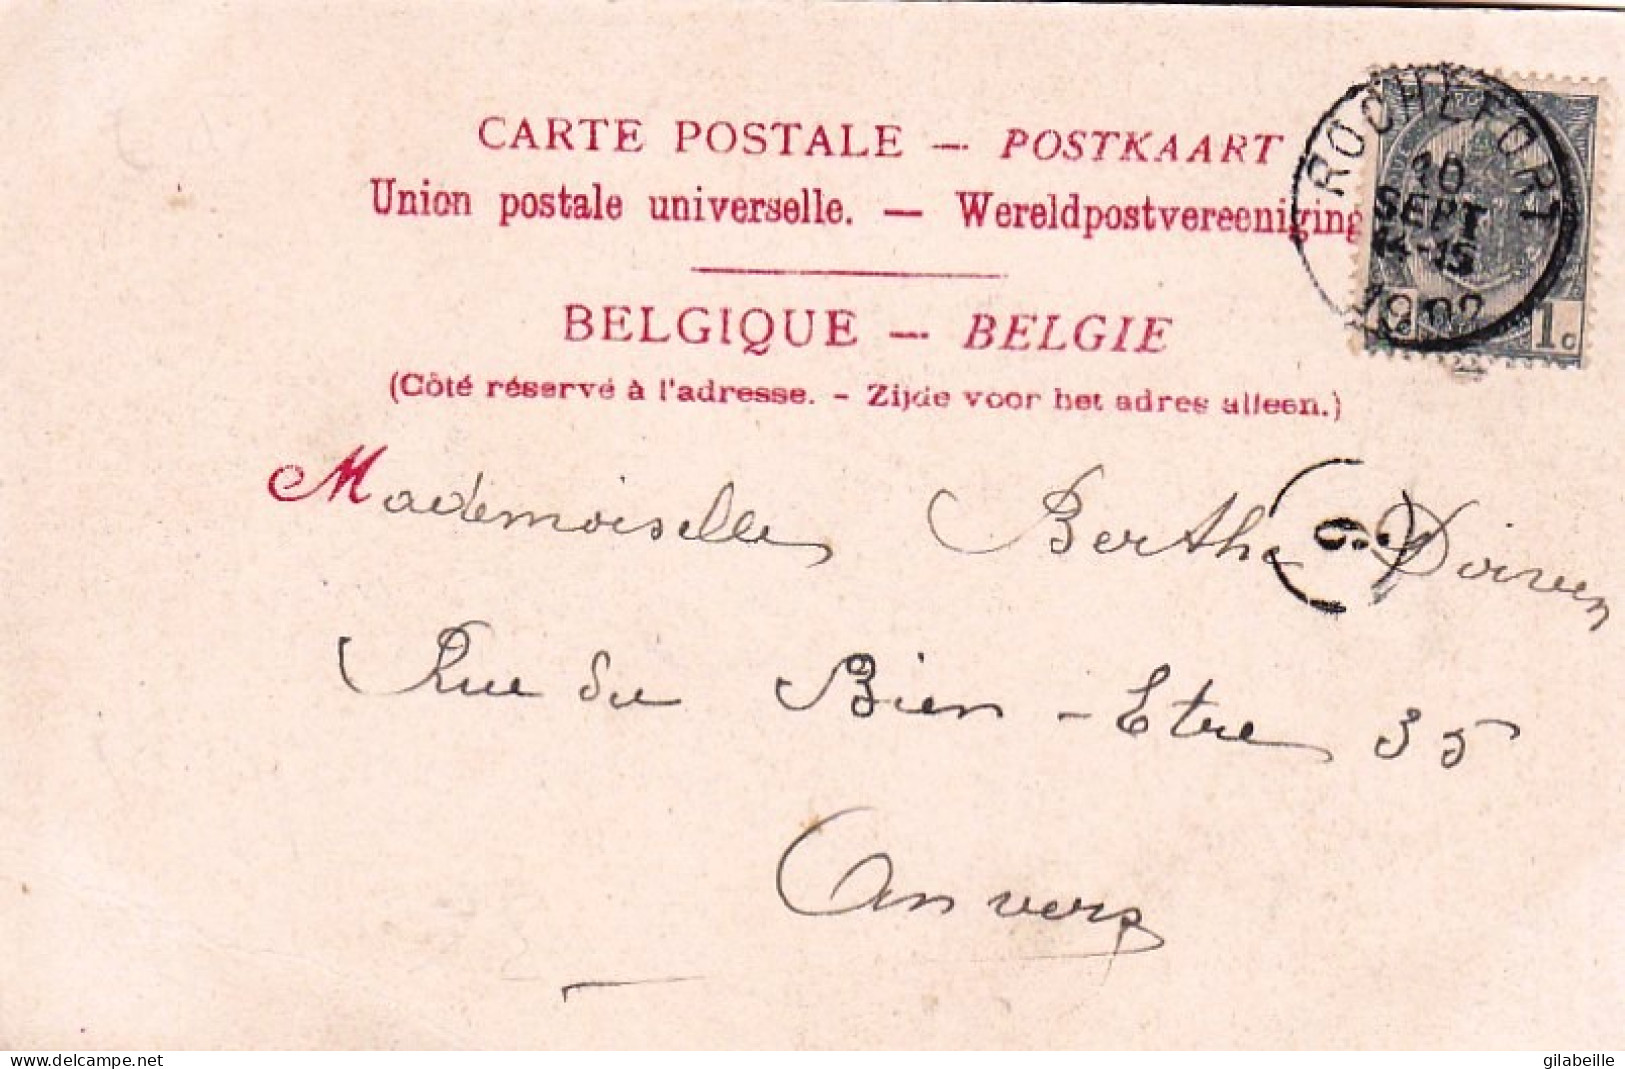 CARTE POSTALE — POSTKAART
Union postale universelle. — Wereldpostvereeniging
BELGIQUE — BELGIE
(Côté réservé à l'adresse. - Zijde voor het adres alleen.)
ROCHEFORT
10
SEPT
14-15
1902
1c
Mademoiselle Berthe
9
Rue du Bien-Etre 35
Anvers
www.delcampe.net
gilabeille